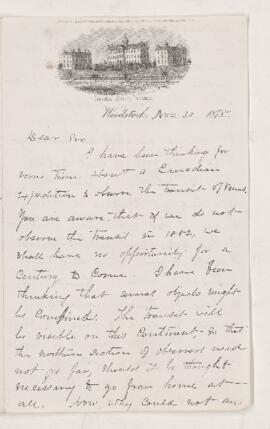 Woodstock, Nov. 30 1875.
Dear Sir
I have been thinking for
some time about a Canadian
Expedition to observe the transit of Venus.
You are aware that if we do not
observe the transit in 1882, we
shall have no opportunity for a
Century to Come. I have been
thinking that several objects might
be Combined. The transit will
be visible on this Continent so that
the northern section of observers need
not go far, should it be thought
necessary to go from home at
all. Now why could not an